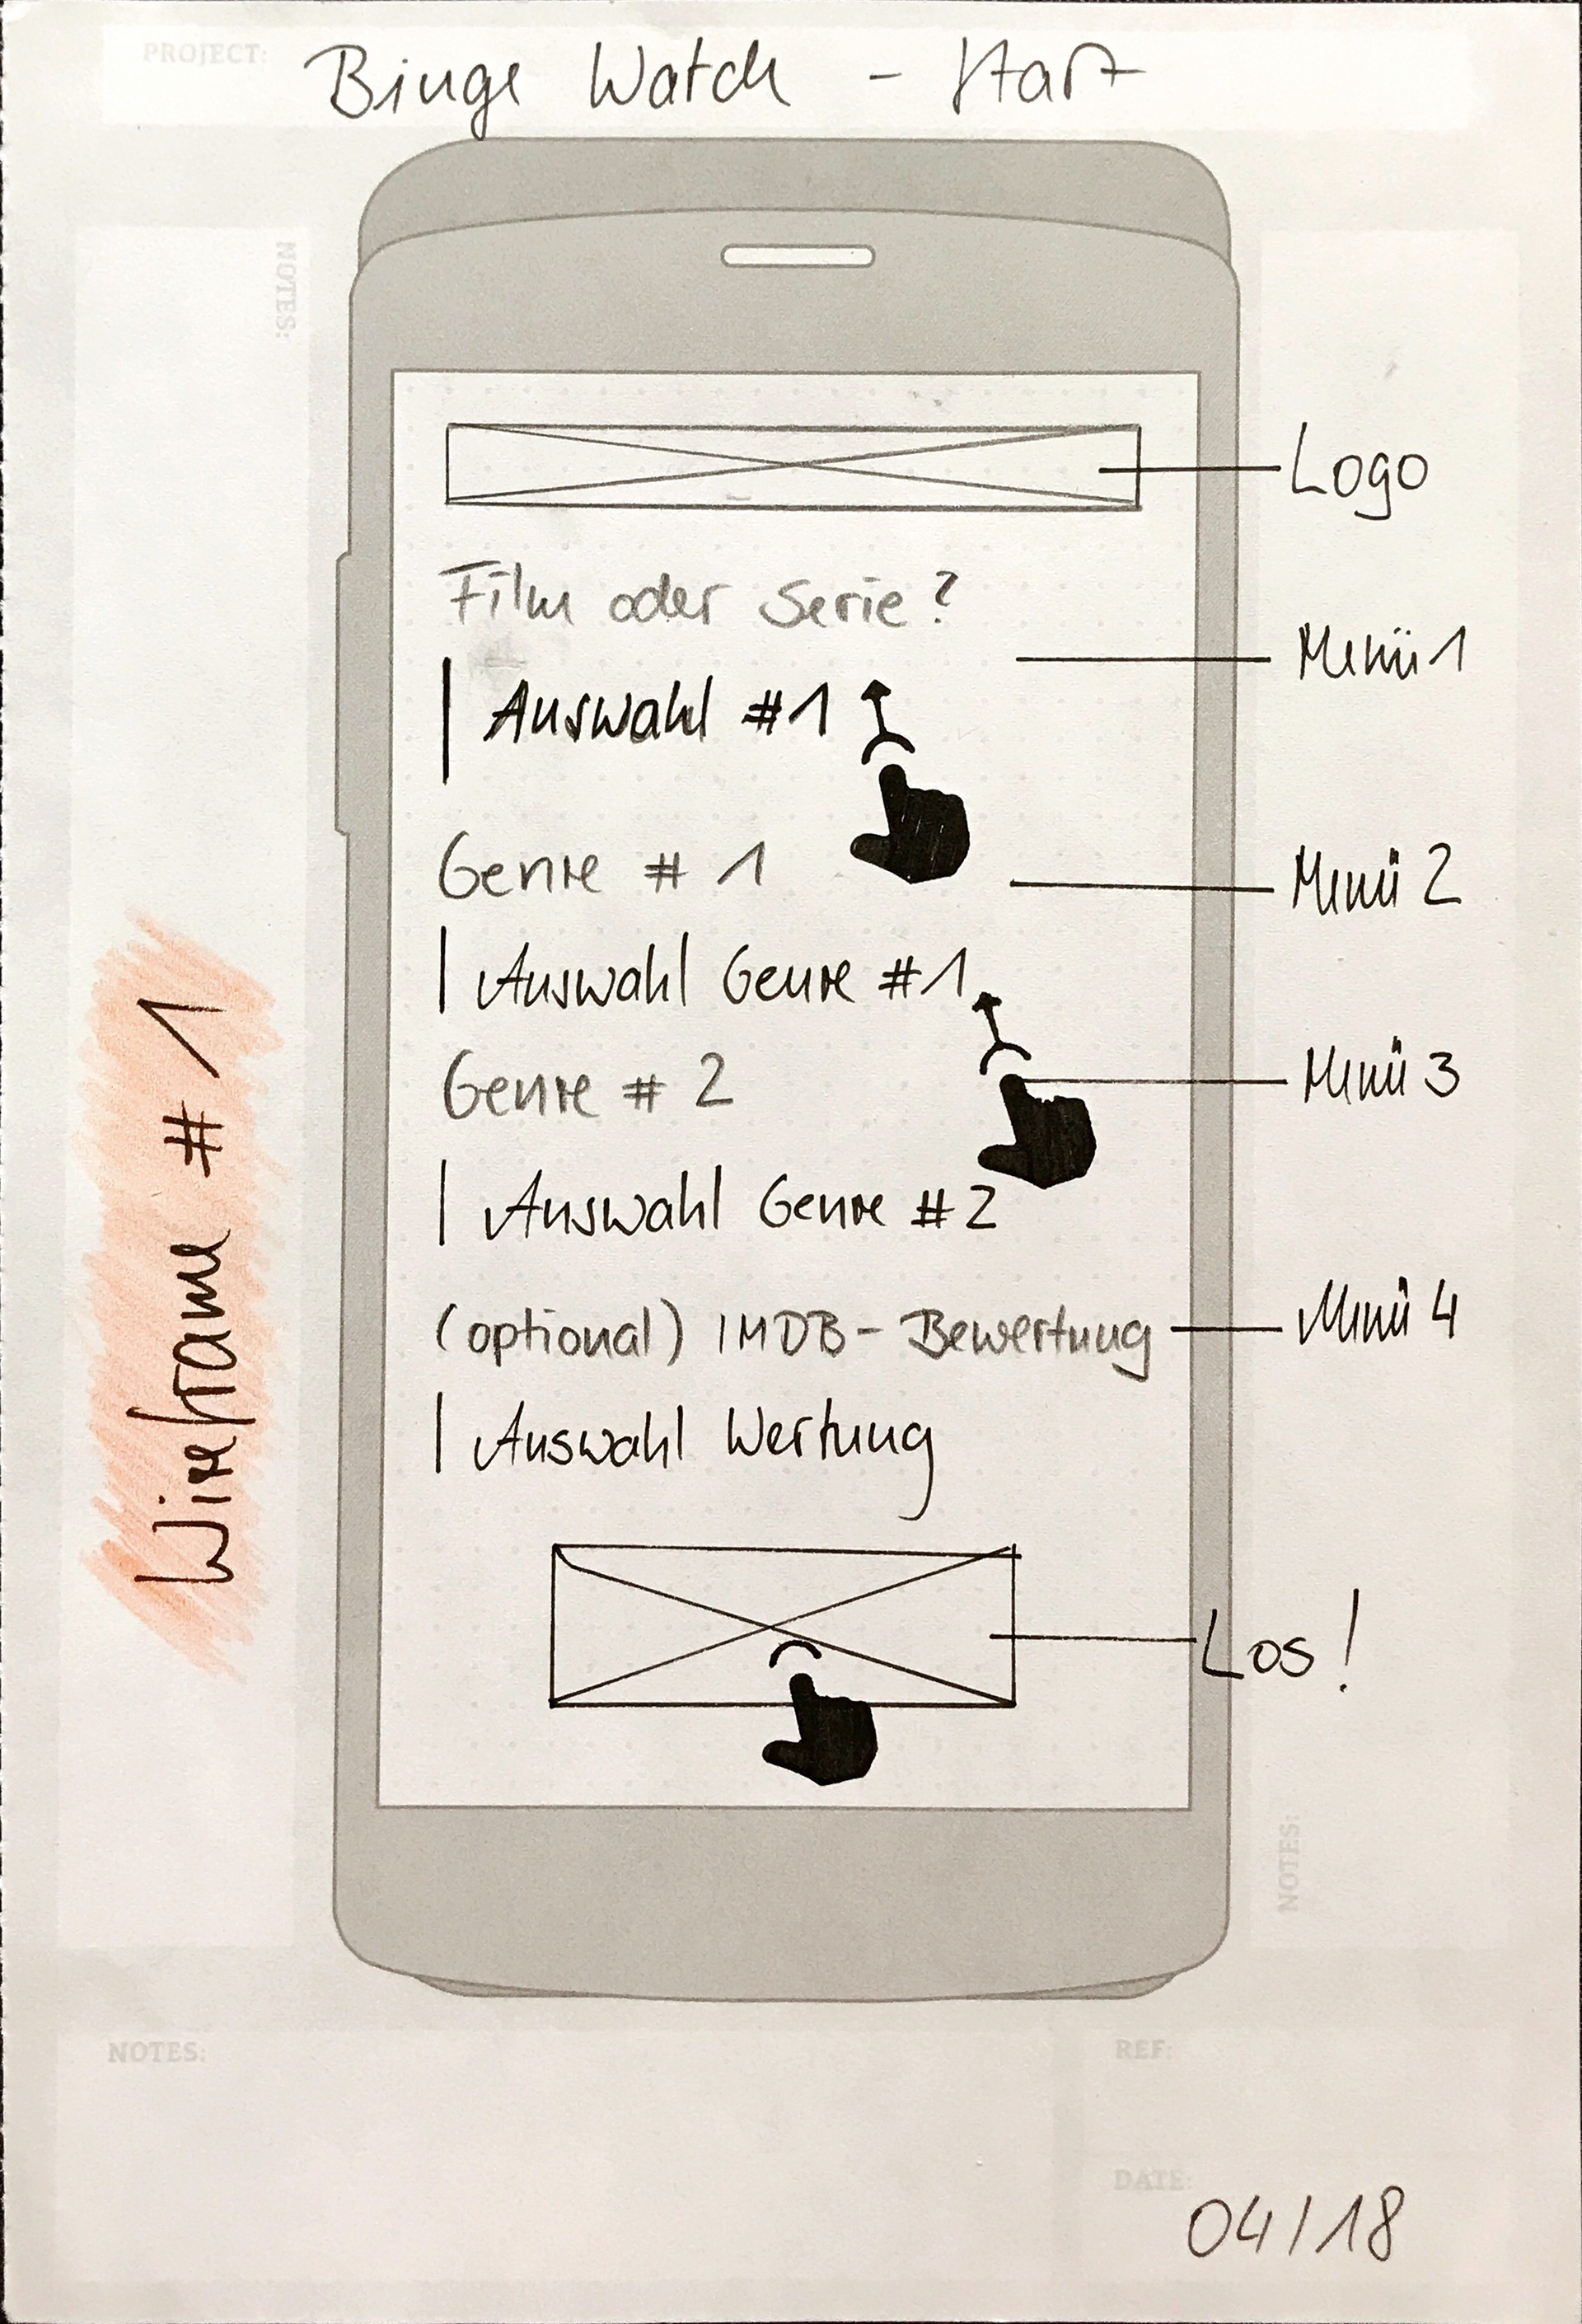 PROJECT: Binge Watch - Start
NOTES:
Logo
Film oder Serie?
Menü 1
Auswahl #1
Genre #1
Menü 2
Auswahl Genre #1
Genre #2
Menü 3
Auswahl Genre #2
(optional) IMDB-Bewertung
Menü 4
Auswahl Wertung
Los!
Wireframe #1
NOTES:
NOTES:
REF:
DATE:
04/18